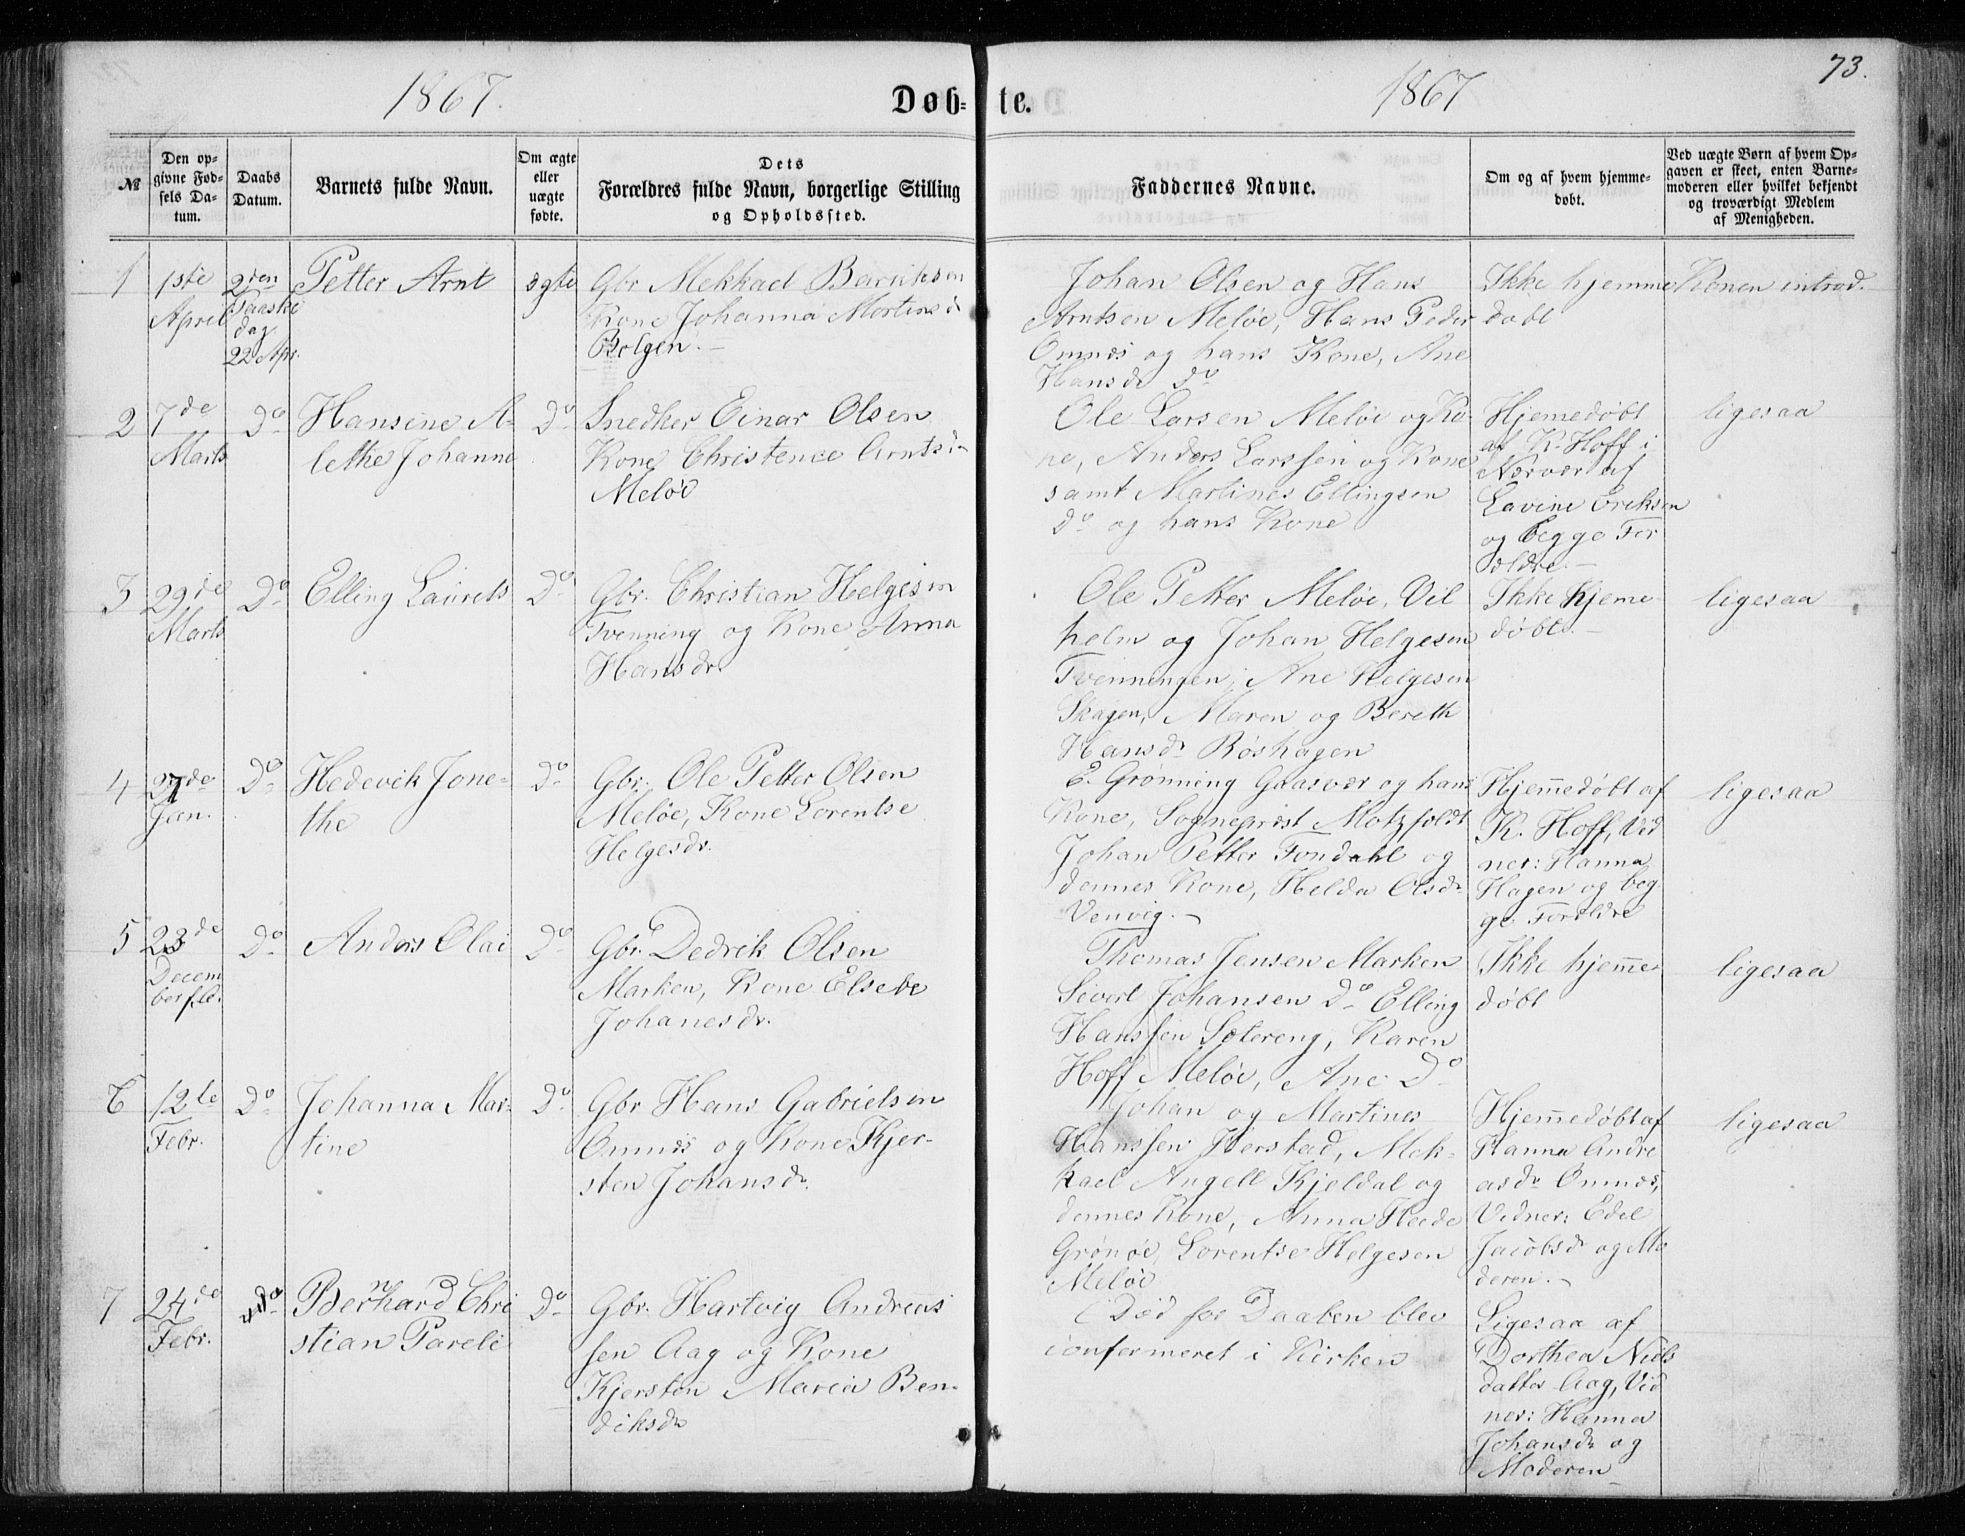 73.
1867.
Døb-
te.
1867
№
Den op-
givne Fød-
sels Da-
tum.
Daabs
Datum.
Barnets fulde Navn.
Om ægte
eller
uægte
fødte.
Dets
Forældres fulde Navn, borgerlige Stilling
og Opholdssted.
Faddernes Navne.
Om og af hvem hjemme-
døbt.
Ved uægte Børn af hvem Op-
gaven er skeet, enten Barne-
moderen eller hvilket bekjendt
og troværdigt Medlem
af Menigheden.
1
1ste
April
2den
Paaske
dag
22 Apr.
Petter Arnt
ægte
Gbr Mekkael Baruksen
Kone Johanna Mortensd
Bolgen.-
Johan Olsen og Hans
Arntsen Meløe, Hans Peder
Ommes og hans Kone, Ane
Hansdr Do
Ikke hjemme
døbt
Konen introd.
2
7de
Marts
Do
Hansine A-
lethe Johanne
Do
Snedker Einar Olsen
Kone Christence Arntsd
Meløe
Ole Larsen Meløe og Ko-
ne, Anders Larssen og Kone
samt Martines Ellingsen
do og hans Kone
Hjemedøbt
af K. Hoff i
Nærvær af
Lavine Eriksen
og begge For
ældre.-
ligesaa
3
29de
Marts
Do
Elling Laurets
Do
Gbr. Christian Helgesen
Tvenning og Kone Anna
Hansdr.
Ole Petter Meløe, Vil
helm og Johan Helgesen
Tvenningen, Ane Helgesen
Skagen, Maren og Bereth
Hansdr Røshagen
Ikke hjeme-
døbt.-
ligesaa
4
27de
Jan.
Do
Hedevik Jone-
the
Do
Gbr. Ole Petter Olsen
Meløe, Kone Lorentse
Helgesdr.
E. Grønning Gaasvær og hans
Kone, Sogneprest Motzfeldt
Johan Petter Fondahl og
dennes Kone, Helda Olsdr
Venvig.-
Hjemmedøbt af
K. Hoff, Vid
ner: Hanna
Hagen og beg
ge Forældre
ligesaa
5
23de
Decem
ber f.l.
Do
Anders Olai
Do
Gbr. Dedrik Olsen
Marken, Kone Elsebe
Johanesdr.
Thomas Jensen Marken
Sivert Johansen Do Elling
Hanssen Sætereng, Karen
Hoff Meløe, Ane Do
Ikke hjemme-
døbt
ligesaa
6
12te
Febr.
Do
Johanna Mar-
tine
Do
Gbr Hans Gabrielsen
Ommes og Kone Kjer-
sten Johansdr.
Johan og Martines
Hanssen Iverstad, Mek-
kael Angell Kjeldal og
dennes Kone, Anna Heede
Grønøe, Lorentse Helgesen
Meløe
Hjemmedøbt af
Hanna Andre
asdr Ommes,
Vidner: Edel
Jacobsdr og Mo
deren.-
ligesaa
7
24de
Febr.
Do
Bernhard Chri
stian Pareli
Do
Gbr. Hartvig Andreas
sen Aag og Kone
Kjersten Maria Ben-
diksdr
Død før Daaben blev
confermeret i Kirken
Ligesaa af
Dorthea Niels
datter Aag, Vid
ner: Hanna
Johansdr og
Moderen